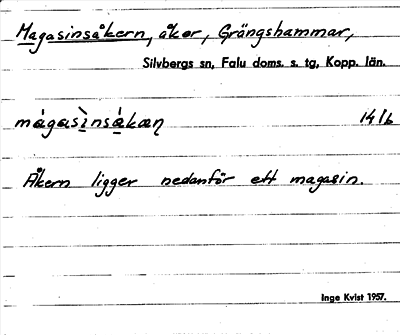 Magasinsåkern, åker, Grängshammar,
Silvbergs sn, Falu doms. s. tg, Kopp. län.
màgasìnsàkæɳ 14/6
Åkern ligger nedanför ett magasin.
Inge Kvist 1957.